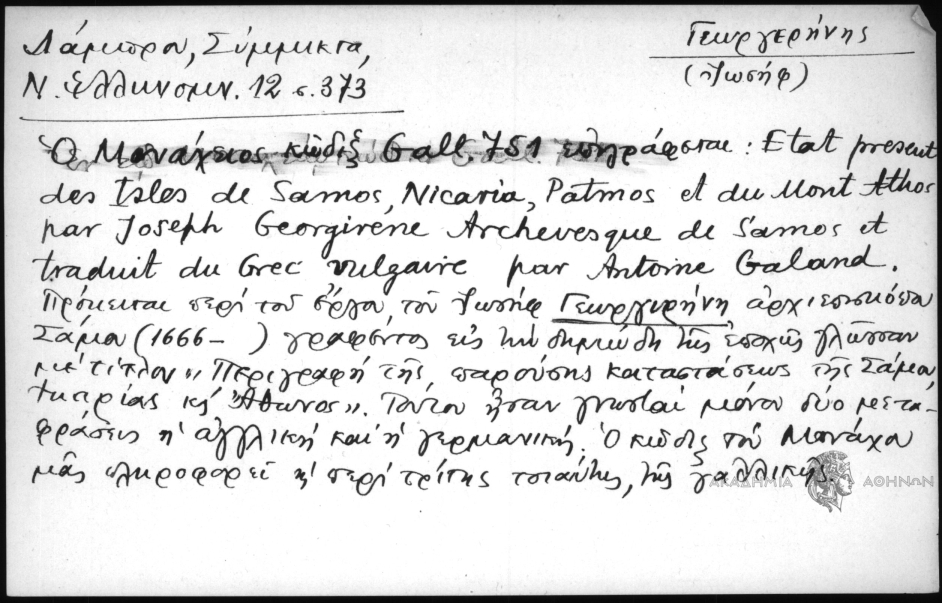 Λάμπρου, Σύμμικτα,
Γεωργερήνης
(Ἰωσήφ)
Ν. Ἑλληνομν. 12 σ. 373
Ὁ Μονάχειος κῶδιξ Gall. 751 ἐπιγράφεται: Etat present
des Isles de Samos, Nicaria, Patmos et du Mont Athos
par Joseph Georgirene Archevesque de Samos et
traduit du Grec vulgaire par Antoine Galand.
Πρόκειται περὶ τοῦ ἔργου τοῦ Ἰωσήφ Γεωργιρήνη ἀρχιεπισκόπου
Σάμου (1666 – ) γραφέντος εἰς τὴν δημώδη τῆς ἐποχῆς γλῶσσαν
μὲ τίτλον "Περιγραφὴ τῆς παρούσης καταστάσεως τῆς Σάμου,
Ἰκαρίας κ' Ἄθωνος". Τούτου ἦσαν γνωσταὶ μόνον δύο μετα-
φράσεις ἡ ἀγγλικὴ καὶ ἡ γερμανική. Ὁ κῶδιξ τοῦ Μονάχου
μᾶς πληροφορεῖ κ' περὶ τρίτης τοιαύτης, τῆς γαλλικῆς.
ΑΚΑΔΗΜΙΑ ΑΘΗΝΩΝ